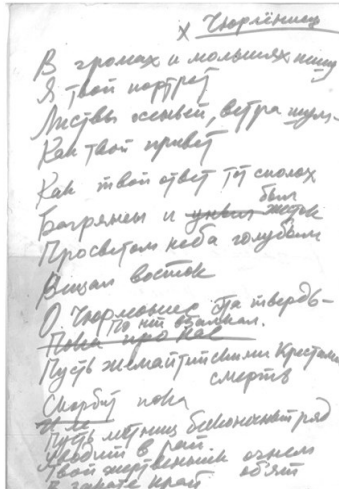 х Чюрлёнису
В громах и молниях пишу
Я твой портрет
Листвы осенней, ветра шум –
Как твой привет
Как твой ответ тот сполох был
Багрянен и жесток
Просветом неба голубым
Вещал восток
О, Чюрлёнис Та твердь –
Пока про нас
Пусть жемайтийскими Крестами
смерть
Скорбит пока
Пусть лестниц бесконечный ряд
Уводит в рай.
Твой жертвенник огнем
объят
В закате край